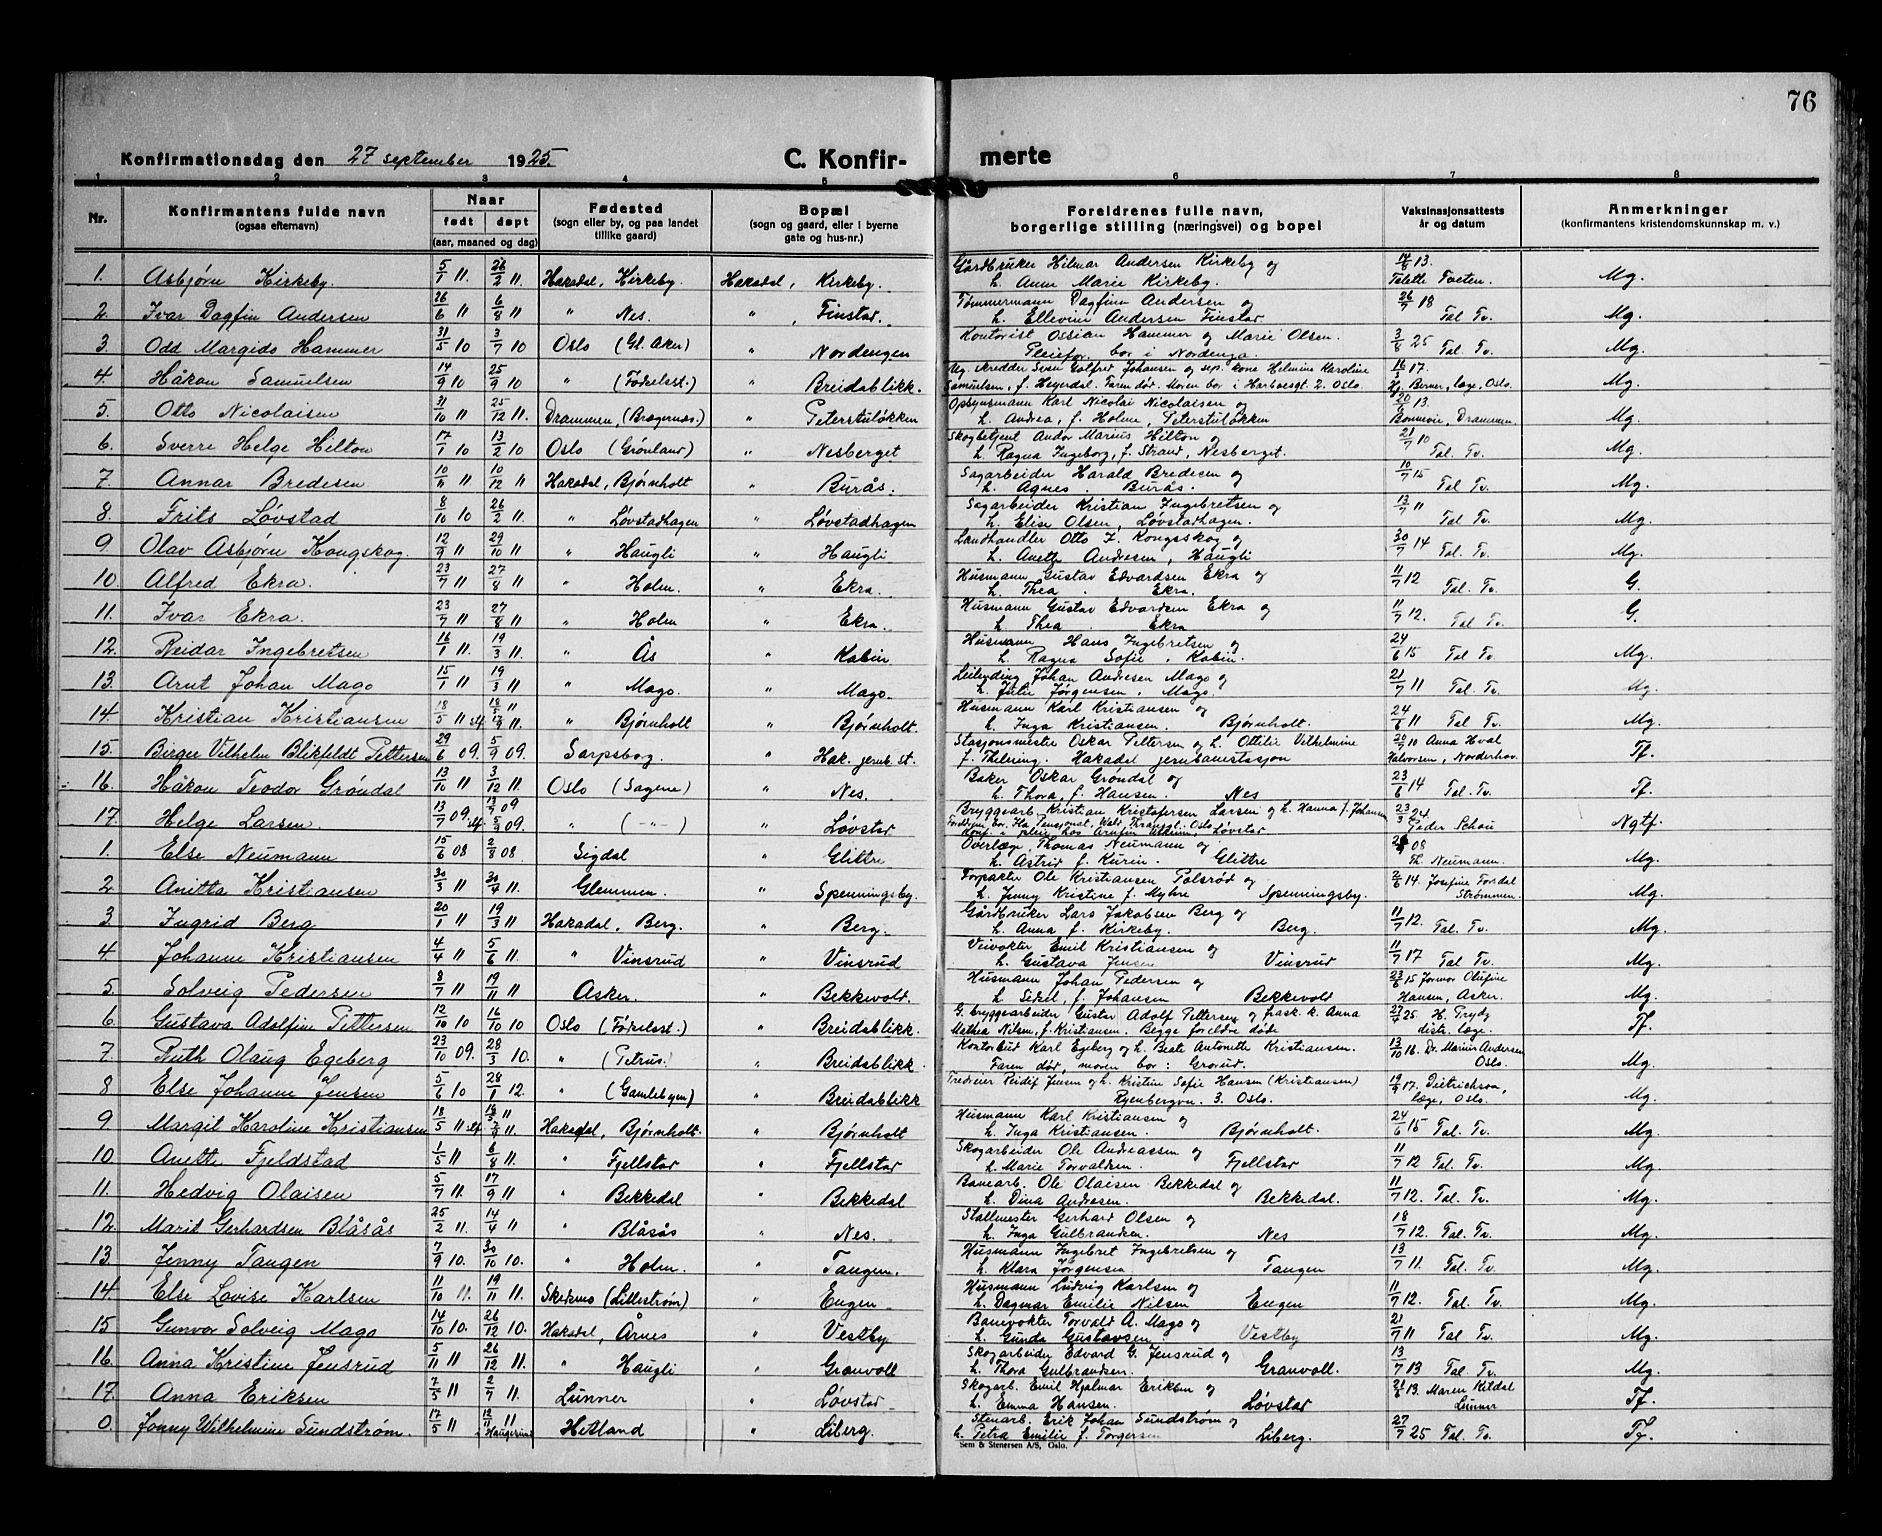 76
Konfirmationsdag den 27 september 1925.
C. Konfir-
merte
1 2 3 4 5 6 7 8
Nr.
Konfirmantens fulde navn
(ogsaa efternavn)
Naar
født
døpt
(aar, maaned og dag)
Fødested
(sogn eller by, og paa landet
tillike gaard)
Bopæl
(sogn og gaard, eller i byerne
gate og hus-nr.)
Foreldrenes fulle navn,
borgerlige stilling (næringsvei) og bopel
Vaksinasjonsattests
år og datum
Anmerkninger
(konfirmantens kristendomskunnskap m. v.)
1. Asbjørn Kirkeby. 5/1 11. 26/2 11. Hakadal, Kirkeby. Hakadal, Kirkeby. Gårdbruker Hilmar Andersen Kirkeby og 14/8 13. Mg.
h. Anne Marie Kirkeby. Talette Tveten.
2 Ivar Dagfin Andersen 26/6 11 6/8 11 " Nes. " , Finstad. Tømmermann Dagfinn Andersen og 26/7 18 Mg.
h. Ellevine Andersen Finstad Tal. Tv.
3. Odd Margido Hammer 31/5 10 3/7 10 Oslo (Gl. Aker) " Nordengen Kontorist Ossian Hammer og Marie Olsen. 3/8 25 Mg.
Pleiefor. bor i Nordenga. Tal. Tv.
4. Håkon Samuelsen 14/9 10 25/9 10 " (Fødselsst.) " Breidablikk. Ug. skredder Sven Golfred Johansen og sep. kone Helmine Karoline 16/ 17. Mg.
Samuelsen, f. Heyerdal. Faren død. Moren bor i Harboesgt 2. Oslo. Hj. Berner, læge, Oslo.
5. Otto Nicolaisen 31/10 11 25/12 11. Drammen, (Bragernes.) " Peterstuløkken Opsynsmann Karl Nicolai Nicolaisen og 20/10 13. Mg.
h. Andrea, f. Holm, Peterstuløkken Drammen.
6 Sverre Helge Hilton 17/1 10 13/2 10 Oslo (Grønland) " Nesberget Skogbetjent Andor Marius Hilton og 21/7 10 Mg.
h. Ragna Ingeborg, f. Strand, Nesberget. Tal. Tv.
7 Annar Bredesen 10/11 11 10/12 11 Hakadal, Bjørnholt " Burås. Sagarbeider Harald Bredesen og 10/7 15 Mg.
h. Agnes . Burås. Tal Tv.
8. Frits Løvstad 8/10 10 26/2 11. " Løvstadhagen " Løvstadhagen Sagarbeider Kristian Ingebretsen og 13/7 11 Mg.
h. Elise Olsen, Løvstadhagen. Tal Tv.
9 Olav Asbjørn Kongskog. 12/9 11 29/10 11. " Haugli " Haugli Landhandler Otto J. Kongsskog og 30/7 14 Mg.
h. Anette Andresen, Haugli Tal. Tv.
10. Alfred Ekra. 23/7 11 27/8 " Holm. " Ekra. Husmann Gustav Edvardsen Ekra og 11/7 12 G.
h. Thea . Ekra. Tal. Tv.
11. Ivar Ekra. 23/7 11 27/8 11 " Holm " Ekra. Husmann Gustav Edvardsen Ekra og 11/7 12. G.
h. Thea . Ekra Tal Tv.
12. Reidar Ingebretsen 16/1 11 19/3 11 " Ås " Kabin Husmann Hans Ingebretsen og 24/6 15 Mg.
h. Ragna Sofie, Kabin. Tal Tv.
13. Arnt Johan Mago 15/1 11 19/3 11 " Mago. " Mago. Leilending Johan Andresen Mago og 21/7 11 Mg.
h. Julie Jørgensen. Mago. Tal. Tv.
14. Kristian Kristiansen 18/5 11 st. 18/5 11 17/9 11. " Bjørnholt " Bjørnholt. Husmann Karl Kristiansen og 24/6 11 Mg.
h. Inga Kristiansen. Bjørnholt. Tal Tv.
15. Birger Vilhelm Blikfeldt Pettersen 29/6 09. 5/9 09. Sarpsborg. " Hak. jernb. st. Stasjonsmester Oskar Pettersen og h. Ottilie Vilhelmine 20/7 10 Anna Hval Tf.
f. Thelning. Hakadal jernbanestasjon Halvorsen, Norderhov.
16. Håkon Teodor Grøndal 13/10 11 3/12 11. Oslo (Sagene) " Nes. Baker Oskar Grøndal og 23/6 14 Tf.
h. Thora, f. Hansen. Nes Tal. Tv.
17. Helge Larsen. 13/7 09. st. 13/7 09 5/9 09. " (-"-) " Løvstad Bryggearb. Kristian Kristofersen Larsen og h. Hanna f. Johansen 23/3 24. Ngtf.
Løvstad Peder Schou
1. Else Neumann 15/6 08 2/8 08 Sigdal " Glittre Overlæge Thomas Neumann og 08 Mg.
h. Astrid f. Kurin. Glittre Th. Neumann.
2 Anitta Kristiansen 30/3 11 30/4 11. Glemmen. " Spenningsby. Forpakter Ole Kristiansen Pålsrød og 2/6 14. Josefine Torsdal Mg.
h. Jenny Kristine f. Myhre Spenningsby. Strømmen.
3. Ingrid Berg 20/1 11 19/3 11 Hakadal, Berg. " Berg. Gårdbruker Lars Jakobsen Berg og 11/7 12. Mg.
h. Anna f. Kirkeby. Berg. Tal. Tv.
4. Johanne Kristiansen 4/4 11 5/6 11. " Vinsrud " Vinsrud Veivokter Emil Kristiansen og 11/7 17 Mg.
h. Gustava Jensen Vinsrud Tal Tv.
5. Solveig Pedersen 8/7 11 19/11 11 Asker. " Bekkevold. Husmann Johan Pedersen og 23/6 15 Jormor Olufine Mg.
h. Sidsel, f. Johansen Bekkevold Hansen, Asker.
6 Gustava Adolfine Pettersen 12/10 10 16/10 10 Oslo (Fødselsst.) " Breidablikk. G. bryggearbeider Gustav Adolf Pettersen og frask. k. Anna 27/4 25. H. Trydz Tf.
Mathea Nilsen, f. Kristiansen. Begge foreldre døde distr. læge.
7. Ruth Olaug Egeberg 23/10 09. 28/3 10. " (Petrus.) " Breidablikk. Kontorbud Karl Egeberg og h. Beate Antonette Kristiansen. 13/10 16. Dr. Marius Andersen Mg.
Faren død, moren bor: Grorud. Oslo.
8 Else Johanne Jensen 5/6 10 28/1 12. " (Gamlebyen) " Breidablikk Tredreier Reidif Jensen og h. Kristine Sofie Hansen (Kristiansen) 19/9 17. Dietrichson, Mg.
Ryenbergvn. 3. Oslo. læge, Oslo.
9 Margit Karoline Kristiansen 18/5 11 st. 18/5 11 11. Hakadal, Bjørnholt. " Bjørnholt Husmann Karl Kristiansen og 24/6 15 Mg.
h. Inga Kristiansen. Bjørnholt. Tal. Tv.
10 Anette Fjeldstad 1/5 11 6/8 11. " Fjellstad " Fjellstad Skogarbeider Ole Andreassen og 11/7 12 Mg.
h. Marie Torvaldsen. Fjellstad Tal. Tv.
11. Hedvig Olaisen 5/7 11. 17/9 11 " Bekkedal " Bekkedal Banearb. Ole Olaisen Bekkedal og 11/7 12. Mg.
h. Dina Andresen. Bekkedal. Tal. Tv.
12. Marit Gerhardsen Blåsås 25/2 11. 14/4 11 " Blåsås " Nes. Stallmester Gerhard Olsen og 18/7 12. Mg.
h. Inga Gulbrandsen. Nes Tal. Tv.
13. Jenny Tangen 7/9 10. 30/10 10. " Holm. " Tangen. Husmann Ingebret Ingebretsen og 13/7 11. Mg.
h. Klara Jørgensen Tangen Tal. Tv.
14. Else Lovise Karlsen 11/10 11. 19/11 11. Skedsmo (Lillestrøm) " Engen Husmann Ludvig Karlsen og 11/7 12. Mg.
h. Dagmar Emilie Nilsen Engen Tal. Tv.
15 Gunvor Solveig Mago 14/10 10. 26/12 10. Hakadal, Årnes " Vestby Banevokter Torvald A. Mago og 21/7 11 Mg.
h. Gunda Gustavsen. Vestby Tal Tv.
16. Anna Kristine Jensrud 5/11 11 26/12 11. " Haugli " Granvoll Skogarbeider Edvard G. Jensrud og 13/7 13 Mg.
h. Thora Gulbrandsen. Granvoll. Tal. Tv.
17. Anna Eriksen 7/5 11 2/7 11. Lunner " Løvstad Skogarb. Emil Hjalmar Eriksen og 21/6 13. Maren Kildal Tf.
h. Emma Hansen. Løvstad Lunner
0. Jenny Wilhelmine Sundstrøm. 17/5 11 12/11 11 Haugesund Hetland " Liberg. Stenarb. Erik Johan Sundstrøm og 27/7 25 Tf.
h. Petra Emilie f. Torgersen Liberg. Tal. Tv.
Sem & Stenersen A/S, Oslo.